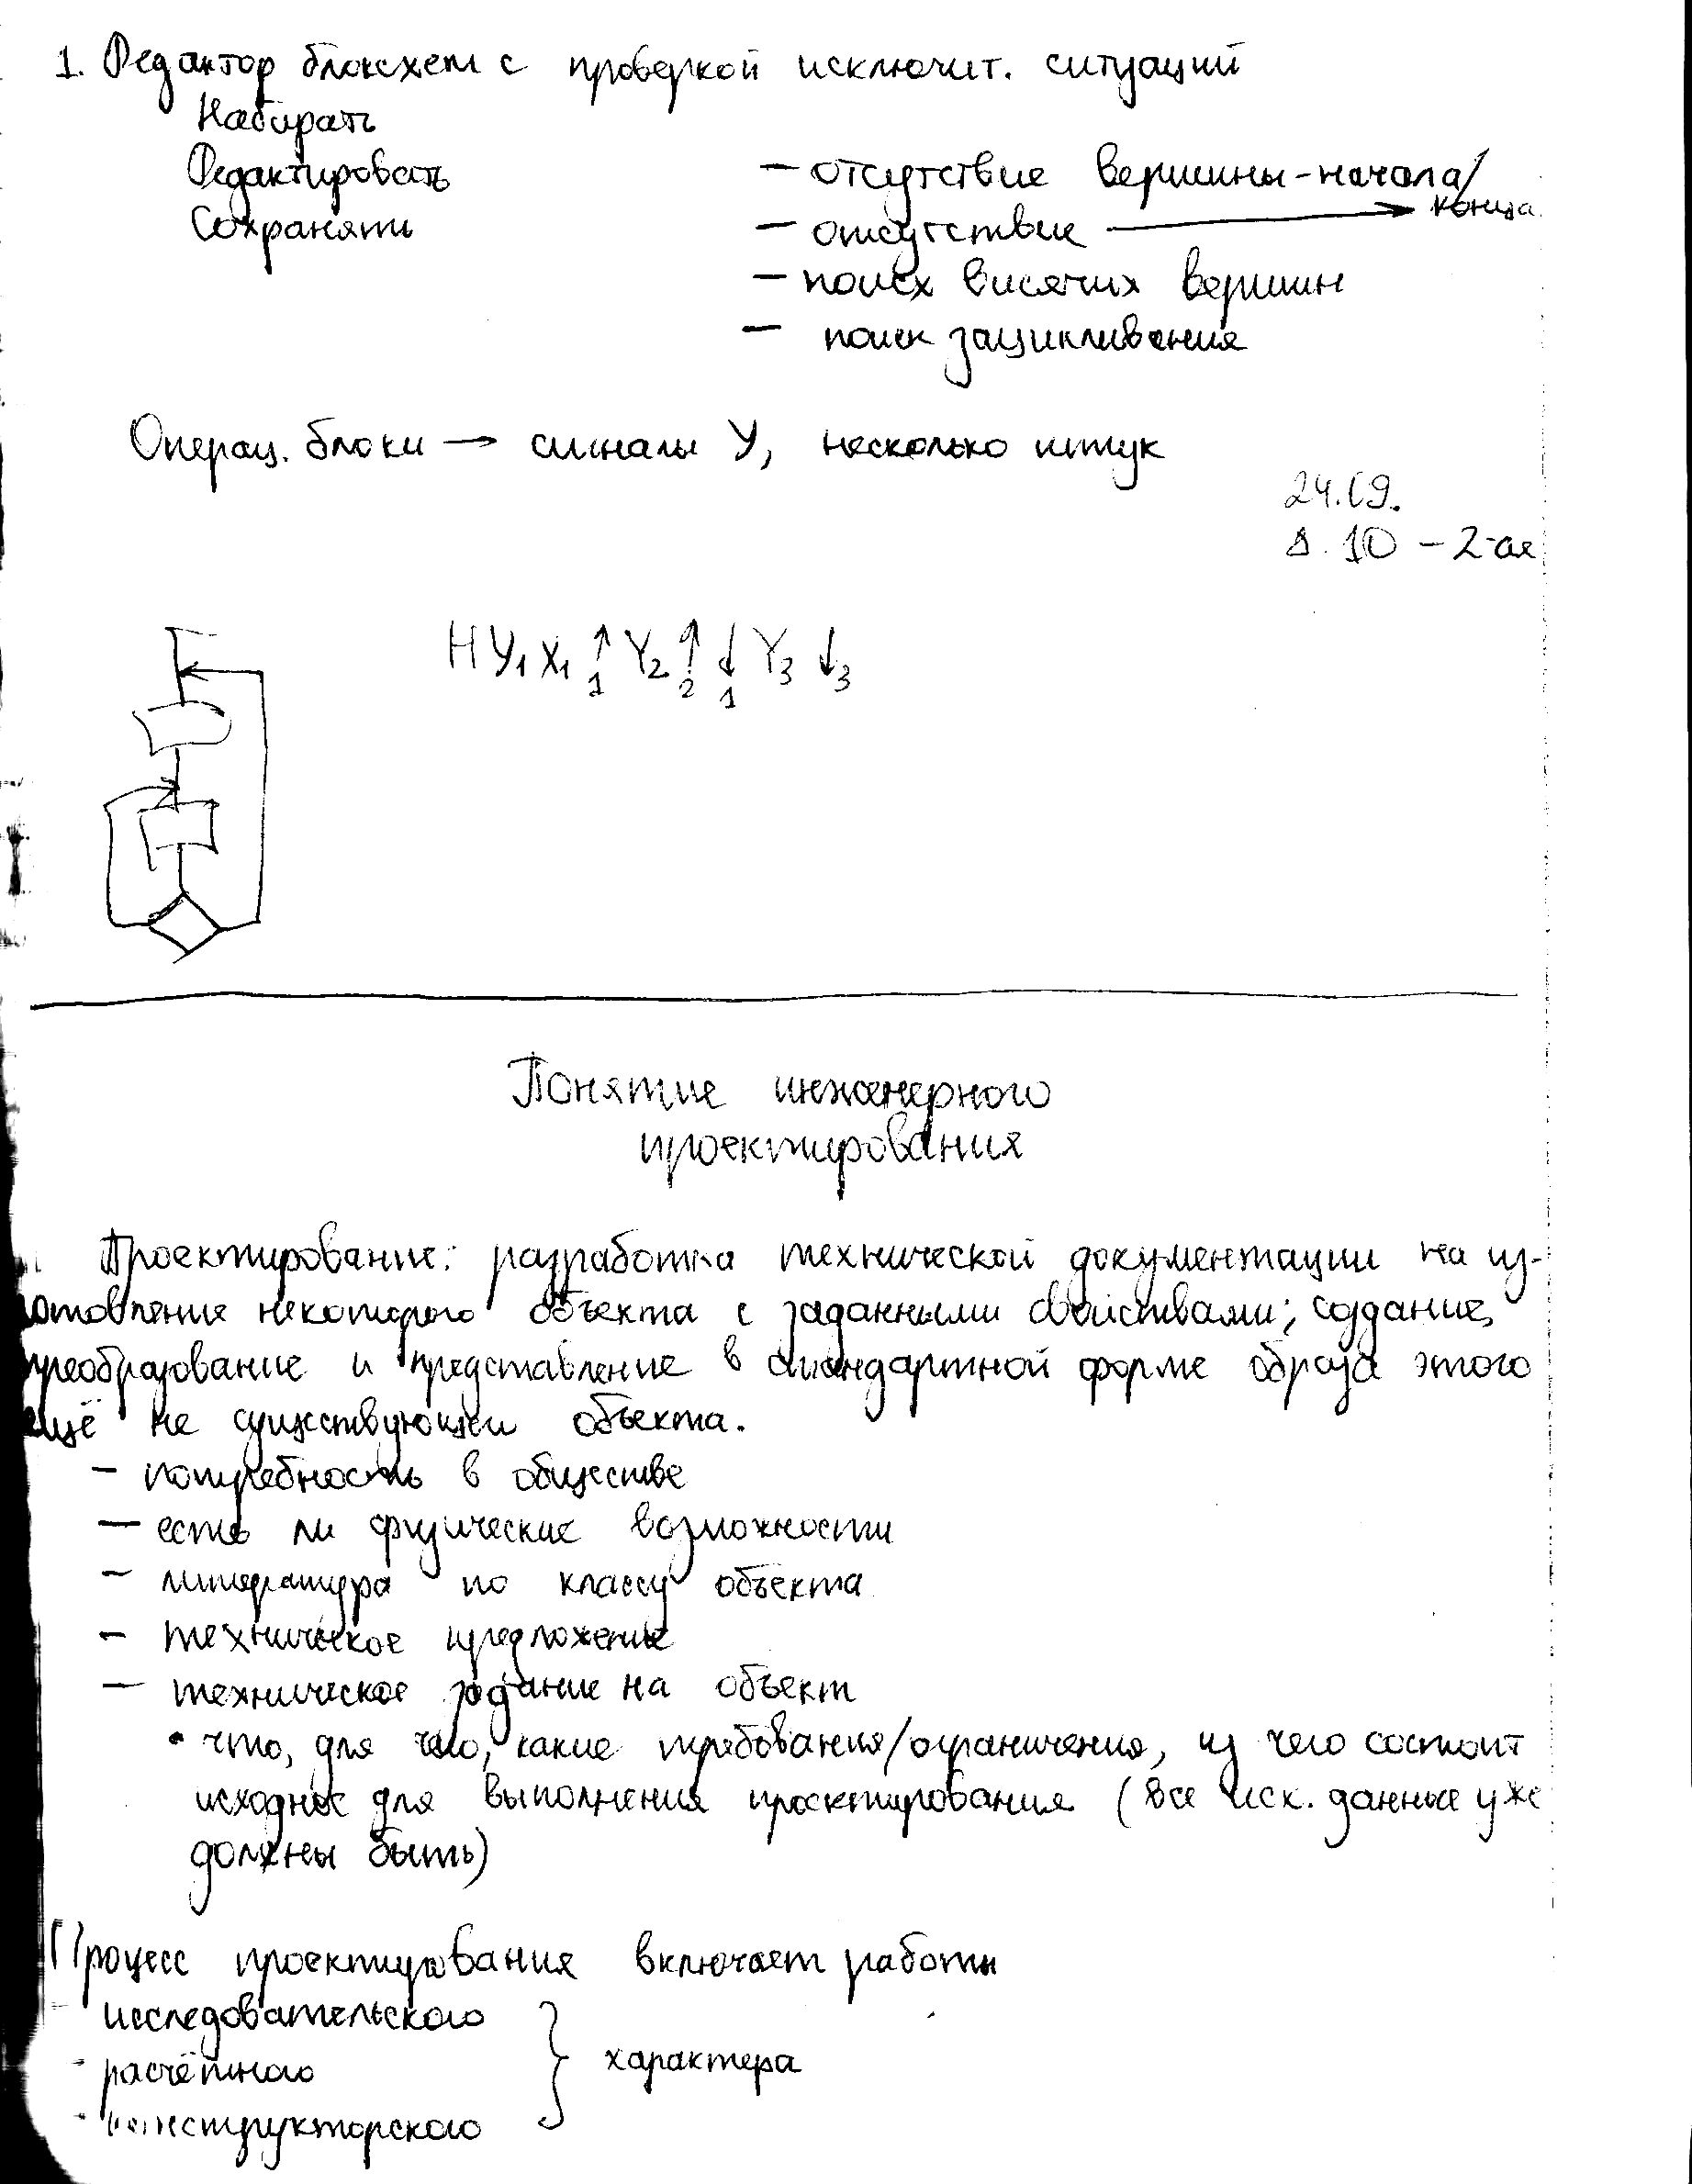 1. Редактор блоксхем с проверкой исключит. ситуаций
Набирать
Редактировать
Сохранять
– отсутствие вершины-начала/
конца
– отсутствие ⟶
– поиск висячих вершин
– поиск зацикливания
Операц. блоки → сигналы У, несколько штук
24.09.
10 – 2-ая
Н У₁ X₁ ↑₁ Y₂ ↑₂ ↓₁ Y₃ ↓₃
Понятие инженерного
проектирования
Проектирование: разработка технической документации на из-
отовление некоторого объекта с заданными свойствами; создание,
преобразование и представление в стандартной форме образа этого
ещё не существующей объекта.
– потребность в обществе
– есть ли физические возможности
– литература по классу объекта
– техническое предложение
– техническое задание на объект
• что, для чего, какие требования/ограничения, из чего состоит
исходное для выполнения проектирования (все исх. данные уже
должны быть)
Процесс проектирования включает работы
- исследовательского
- расчётного
} характера
- конструкторского